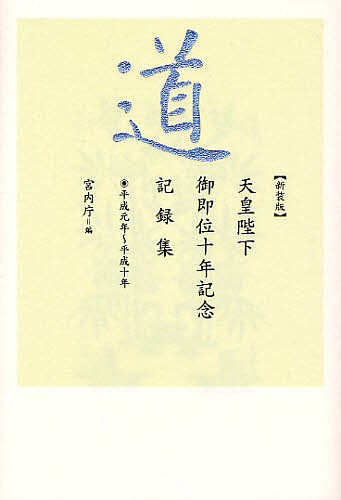 道
【新装版】
天皇陛下
御即位十年記念
記録集
◉平成元年〜平成十年
宮内庁=編